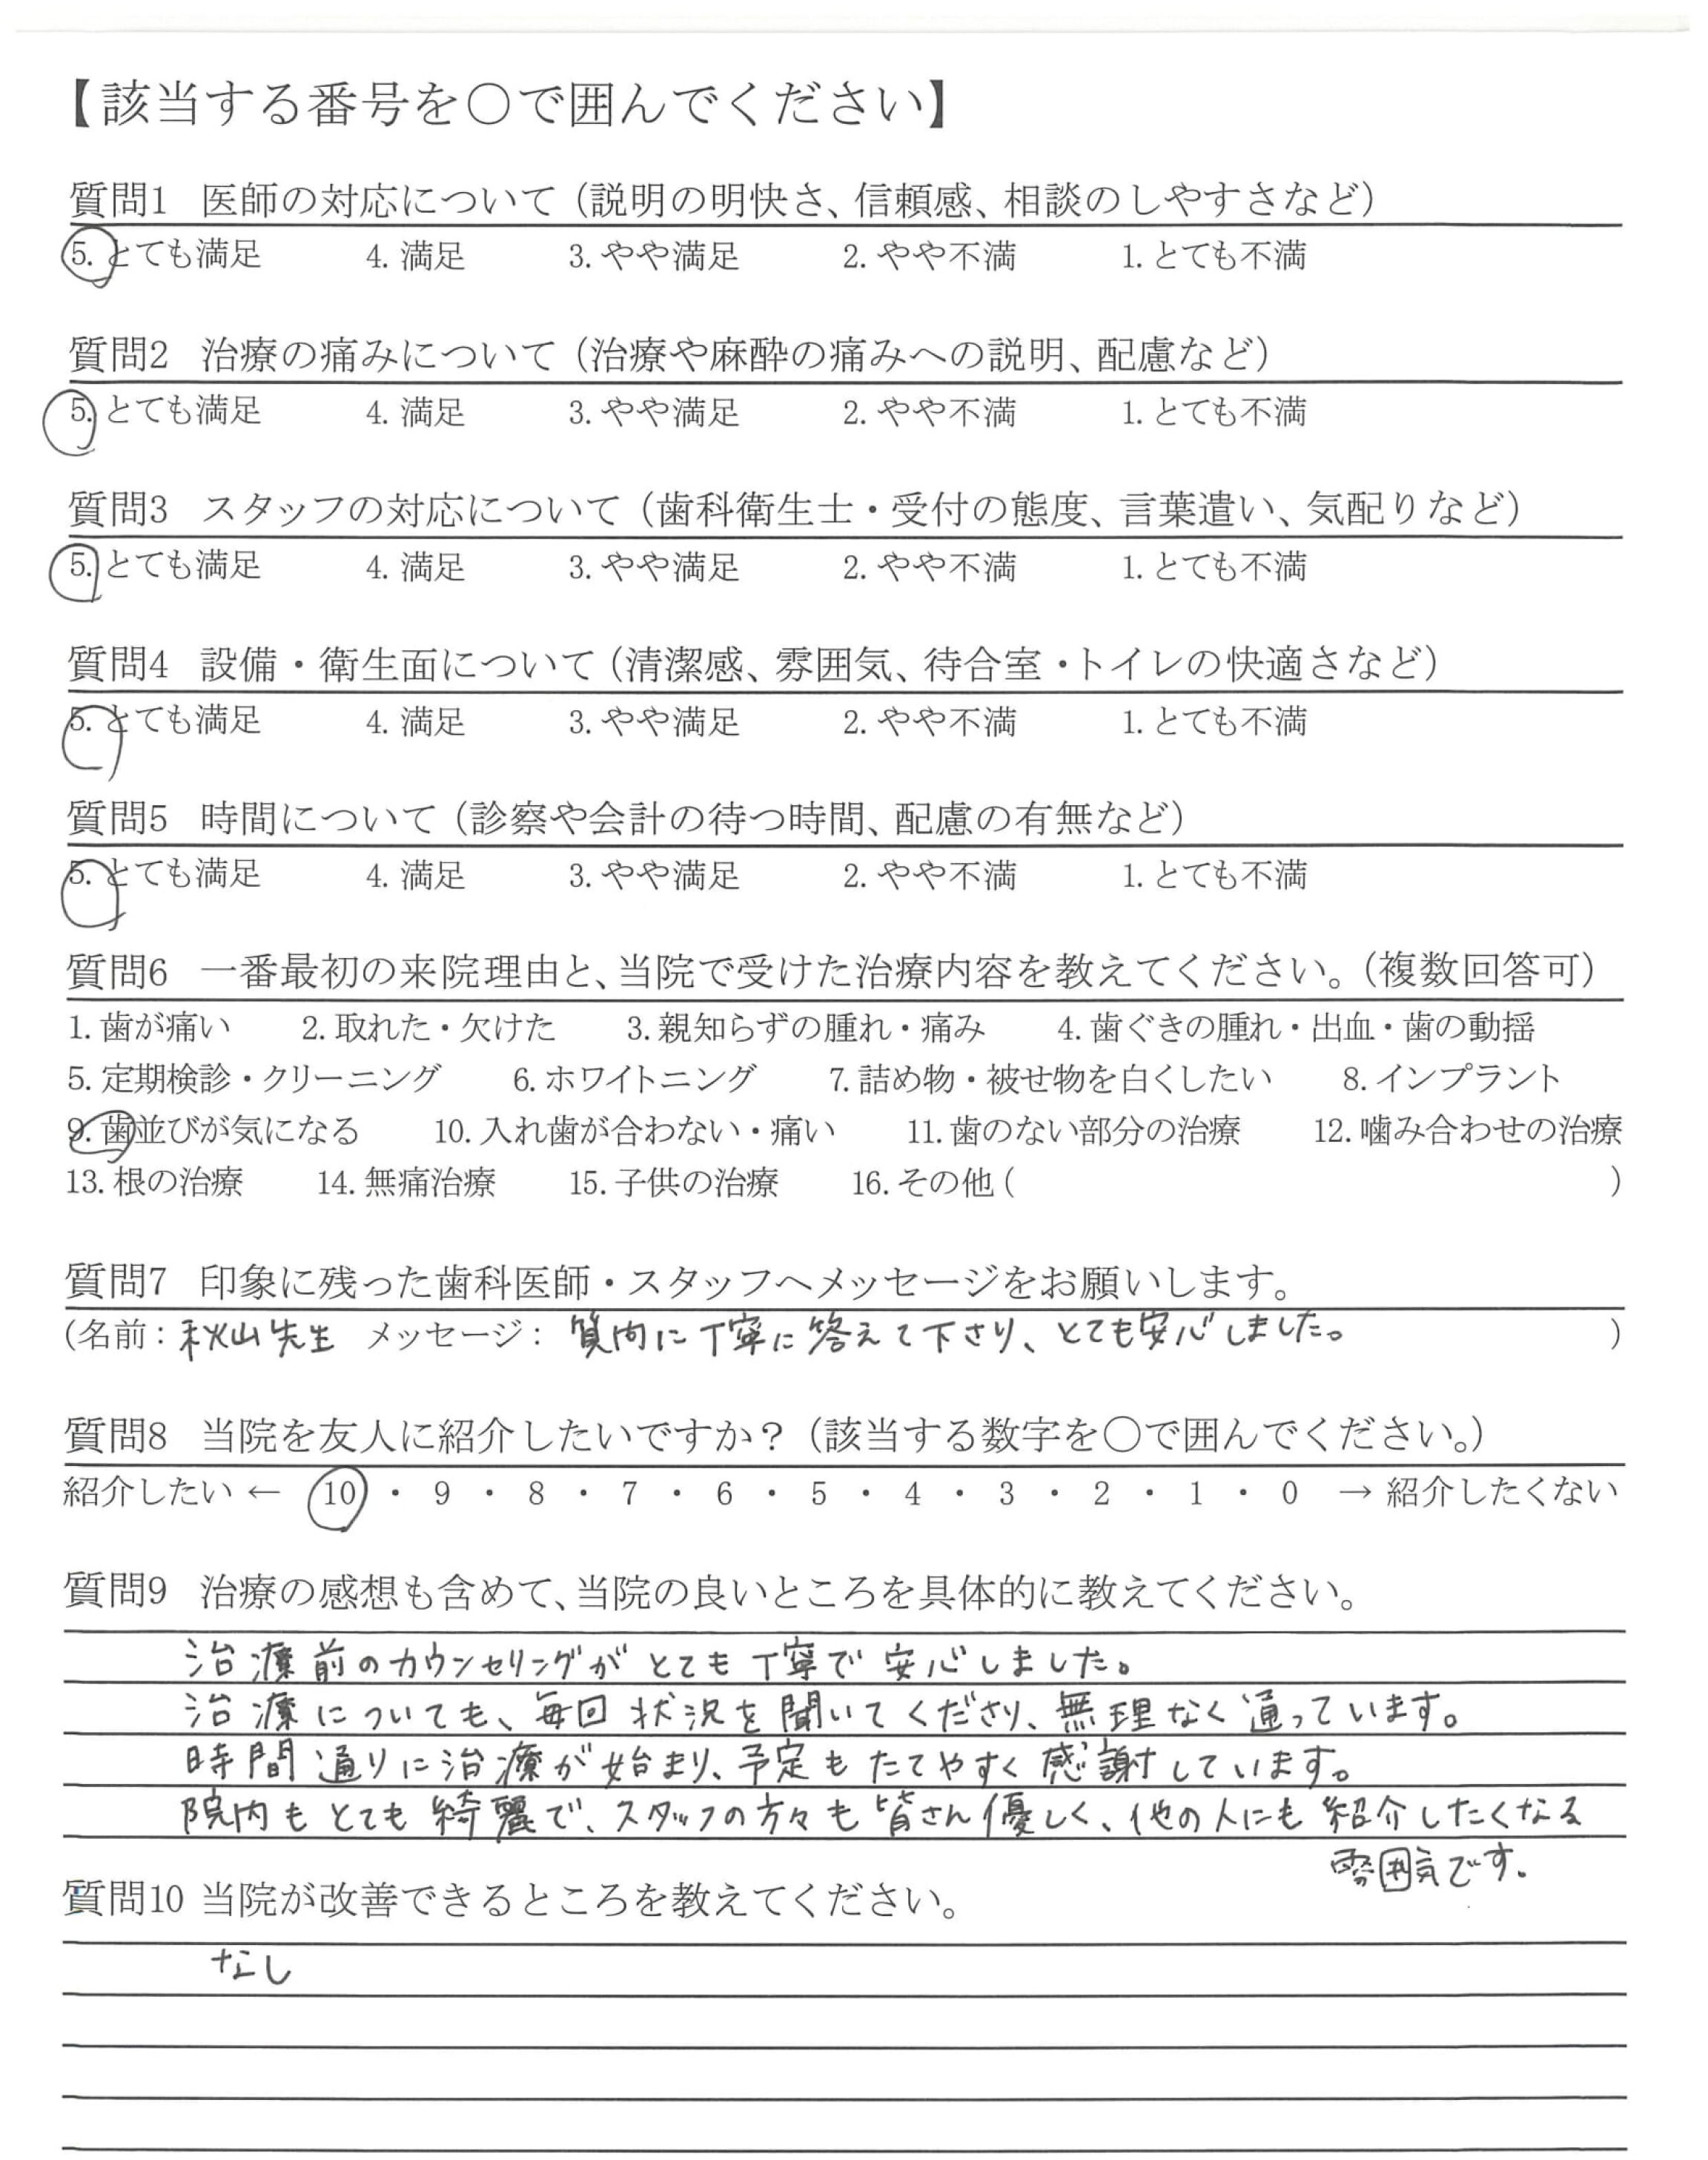 【該当する番号を○で囲んでください】
質問1 医師の対応について（説明の明快さ、信頼感、相談のしやすさなど）
5. とても満足 4. 満足 3. やや満足 2. やや不満 1. とても不満
質問2 治療の痛みについて（治療や麻酔の痛みへの説明、配慮など）
5. とても満足 4. 満足 3. やや満足 2. やや不満 1. とても不満
質問3 スタッフの対応について（歯科衛生士・受付の態度、言葉遣い、気配りなど）
5. とても満足 4. 満足 3. やや満足 2. やや不満 1. とても不満
質問4 設備・衛生面について（清潔感、雰囲気、待合室・トイレの快適さなど）
5. とても満足 4. 満足 3. やや満足 2. やや不満 1. とても不満
質問5 時間について（診察や会計の待つ時間、配慮の有無など）
5. とても満足 4. 満足 3. やや満足 2. やや不満 1. とても不満
質問6 一番最初の来院理由と、当院で受けた治療内容を教えてください。（複数回答可）
1. 歯が痛い 2. 取れた・欠けた 3. 親知らずの腫れ・痛み 4. 歯ぐきの腫れ・出血・歯の動揺
5. 定期検診・クリーニング 6. ホワイトニング 7. 詰め物・被せ物を白くしたい 8. インプラント
9. 歯並びが気になる 10. 入れ歯が合わない・痛い 11. 歯のない部分の治療 12. 噛み合わせの治療
13. 根の治療 14. 無痛治療 15. 子供の治療 16. その他（ ）
質問7 印象に残った歯科医師・スタッフへメッセージをお願いします。
（名前：秋山先生 メッセージ：質問に丁寧に答えて下さり、とても安心しました。）
質問8 当院を友人に紹介したいですか？（該当する数字を○で囲んでください。）
紹介したい ← 10 ・ 9 ・ 8 ・ 7 ・ 6 ・ 5 ・ 4 ・ 3 ・ 2 ・ 1 ・ 0 → 紹介したくない
質問9 治療の感想も含めて、当院の良いところを具体的に教えてください。
治療前のカウンセリングがとても丁寧で安心しました。
治療についても、毎回状況を聞いてくださり、無理なく通っています。
時間通りに治療が始まり、予定もたてやすく感謝しています。
院内もとても綺麗で、スタッフの方々も皆さん優しく、他の人にも紹介したくなる
雰囲気です。
質問10 当院が改善できるところを教えてください。
なし